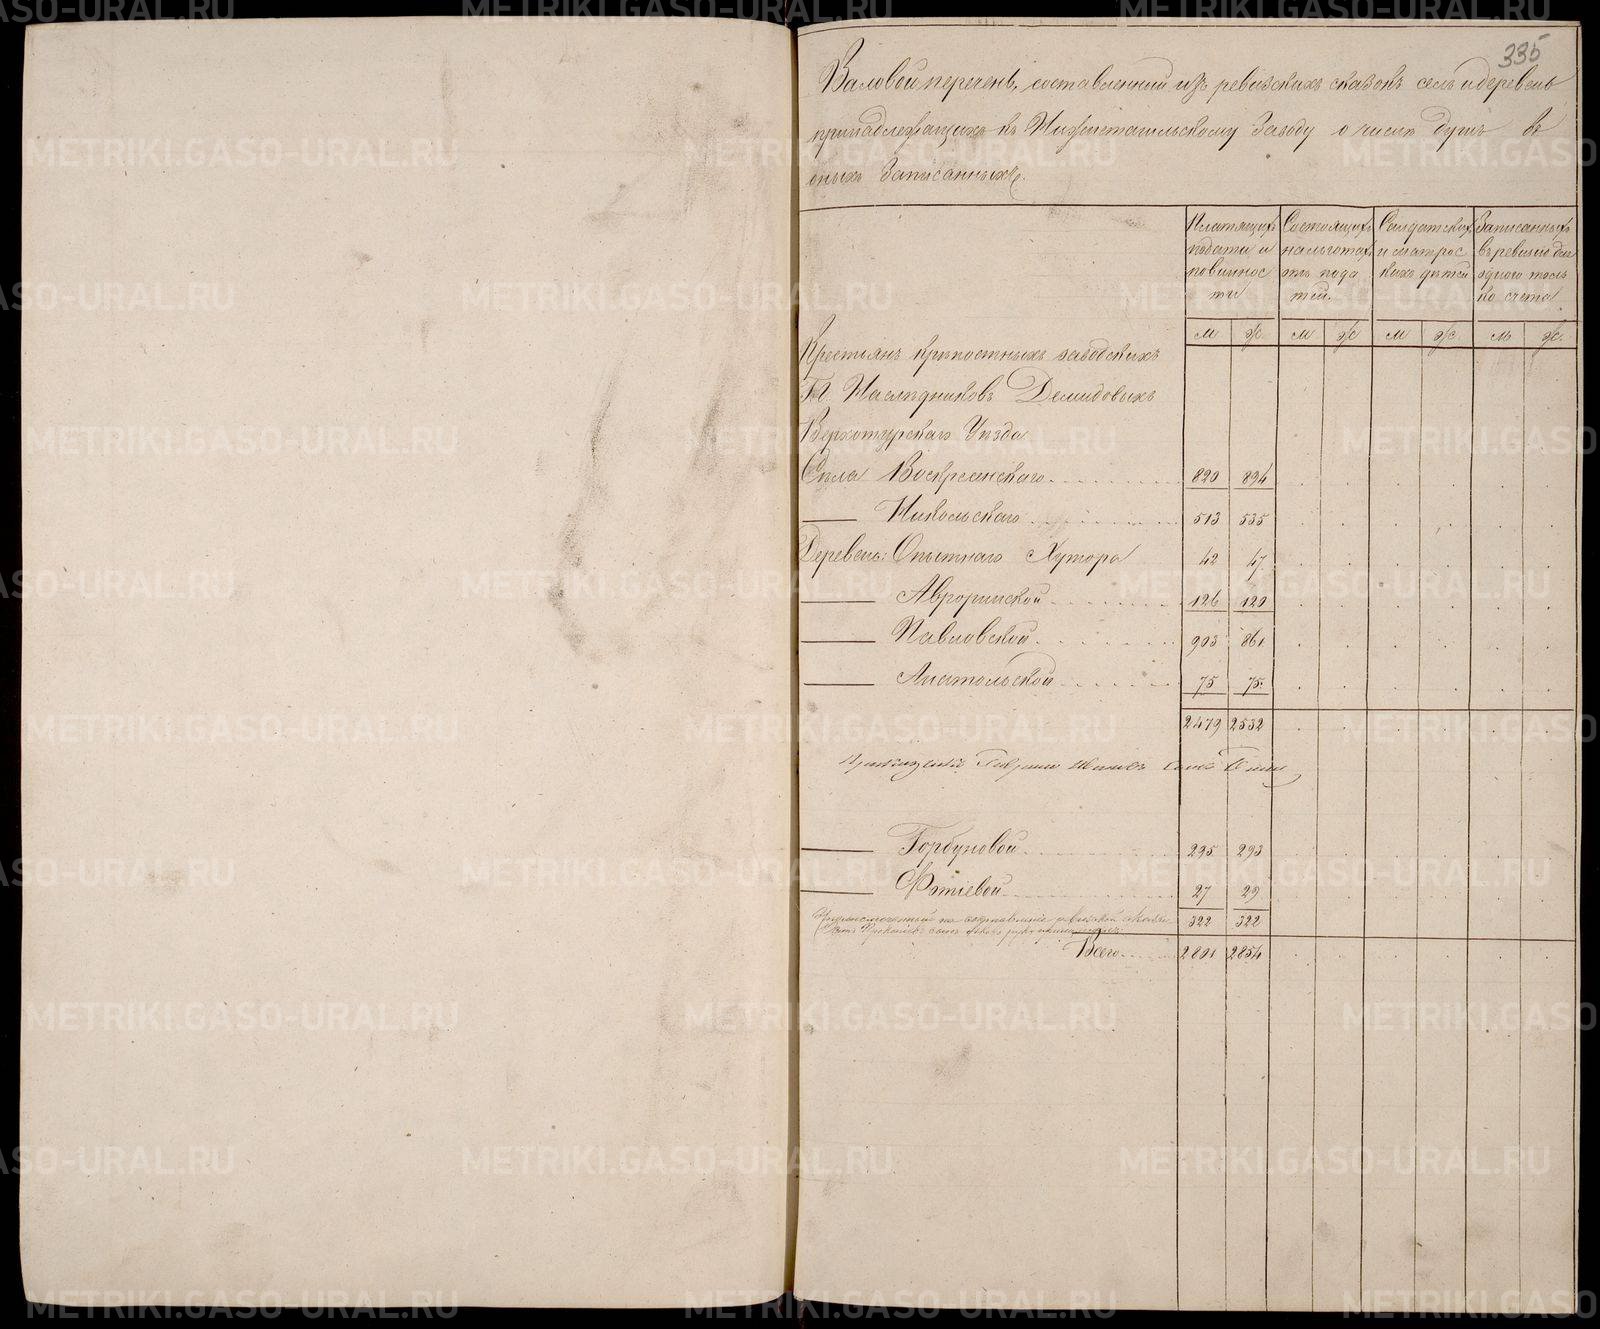 335
Валовой перечень, составленный изъ ревизскихъ сказокъ селъ и деревень
принадлежащихъ къ Нижнетагильскому Заводу о числѣ душъ въ
оныхъ Записанныхъ.
Платящихъ подати и повинности
Состоящихъ на льготахъ отъ податей.
Солдатскихъ и матросскихъ дѣтей
Записанныхъ въ ревизію для одного только счета
м ж м ж м ж м ж
Крестьянъ крѣпостныхъ заводскихъ
Гг. Наслѣдниковъ Демидовыхъ
Верхотурскаго Уѣзда
Села Воскресенскаго 820 894
Никольскаго 513 535
Деревень: Опытнаго Хутора 42 47
Авроринской 126 120
Павловской 903 861
Анатольской 75 75
2479 2532
Горбуновой 295 293
Фотѣевой 27 29
322 322
Всего 2801 2854
METRIKI.GASO-URAL.RU